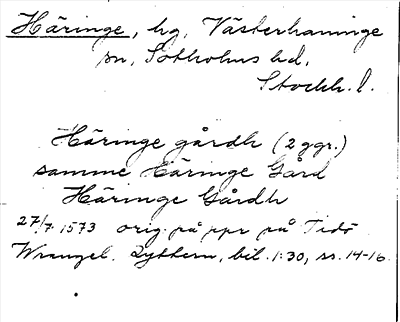 Häringe, hg, Västerhaninge
sn, Sotholms hd,
Stockh. l.
Häringe gårdh (2 ggr.)
samme Häringe Gård
Häringe Gårdh
27/7 1573 orig. på ppr på Tidö
Wrangel. Ryttern, bil. 1:30, ss. 14-16.